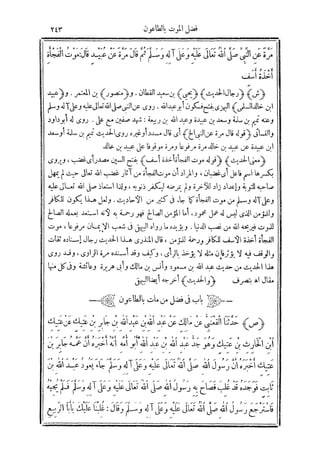 فضل الموت بالطاعون ٢٤٣
مَرَّةً عَنِ النَّبِيِّ صَلَّى اللهُ تَعَالَى عَلَيْهِ وَعَلَى آلِهِ وَسَلَّمَ ثُمَّ قَالَ مَرَّةً عَنْ عُبَيْدٍ قَالَ: مَوْتُ الْفَجْأَةِ
أَخْذَةُ أَسَفٍ
(ش) (رجال الحديث) (يحيى) بن سعيد القطان. و(منصور) بن المعتمر. و(عبيد
ابن خالد السلمى) أبو عبد الله. روى عن النبي صلى الله تعالى عليه وعلى آله وسلم
وعنه تميم بن سلمة وسعد بن عبيدة وعبد الله بن ربيعة: شهد صفين مع على. روى له أبو داود
والنسائى (قوله قال مرة عن النبى الخ) أى قال مسدد أو غيره روى الحديث تميم بن سلمة أو سعد
ابن عبيدة عن عبيد بن خالد مرة مرفوعا ومرة موقوفا على عبيد بن خالد
(معنى الحديث) (قوله موت الفجأة أخذة أسف) بفتح السين مصدر أى غضب، ويروى
بكسرها اسم فاعل أى غضبان، والمراد أن موت الفجأة من آثار غضب الله تعالى حيث لم يمهل
صاحبه للتوبة وإعداد زاد للآخرة ولم يمرضه ليكفر ذنوبه، ولذا استعاذ صلى الله تعالى عليه
وعلى آله وسلم من موت الفجأة كما جاء فى كثير من الأحاديث. ولعل هذا يكون للكافر
وللمؤمن الذى ليس له عمل محمود، أما المؤمن الصالح فهو رحمة به لأنه استعد بعمله الصالح
للموت فيريحه الله من نصب الدنيا. ويؤيده ما رواه البيهقى فى شعب الإيمان مرفوعا، موت
الفجأة أخذة الأسف للكافر ورحمة للمؤمن، قال المنذرى هذا الحديث رجال إسناده ثقات
والوقف فيه لا يؤثر فإن مثله لا يؤخذ بالرأى، وكيف وقد أسنده مرة الراوى، وقد روى
هذا الحديث من حديث عبد الله بن مسعود وأنس بن مالك وأبى هريرة وعائشة وفى كل منها
مقال اهـ بتصرف (والحديث) أخرجه أيضا البيهقى
باب فى فضل من مات بالطاعون
(ص) حَدَّثَنَا الْقَعْنَبِيُّ عَنْ مَالِكٍ عَنْ عَبْدِ اللهِ بْنِ عَبْدِ اللهِ بْنِ جَابِرِ بْنِ عَتِيكٍ عَنْ عَتِيكِ
ابْنِ الْحَارِثِ بْنِ عَتِيكٍ وَهُوَ جَدُّ عَبْدِ اللهِ بْنِ عَبْدِ اللهِ أَبُو أُمِّهِ أَنَّهُ أَخْبَرَهُ أَنَّ عَمَّهُ جَابِرَ بْنَ
عَتِيكٍ أَخْبَرَهُ أَنَّ رَسُولَ اللهِ صَلَّى اللهُ تَعَالَى عَلَيْهِ وَعَلَى آلِهِ وَسَلَّمَ جَاءَ يَعُودُ عَبْدَ اللهِ بْنَ
ثَابِتٍ فَوَجَدَهُ قَدْ غُلِبَ فَصَاحَ بِهِ رَسُولُ اللهِ صَلَّى اللهُ تَعَالَى عَلَيْهِ وَعَلَى آلِهِ وَسَلَّمَ فَلَمْ يُجِبْهُ
فَاسْتَرْجَعَ رَسُولُ اللهِ صَلَّى اللهُ تَعَالَى عَلَيْهِ وَعَلَى آلِهِ وَسَلَّمَ وَقَالَ: غُلِبْنَا عَلَيْكَ يَا أَبَا الرَّبِيعِ